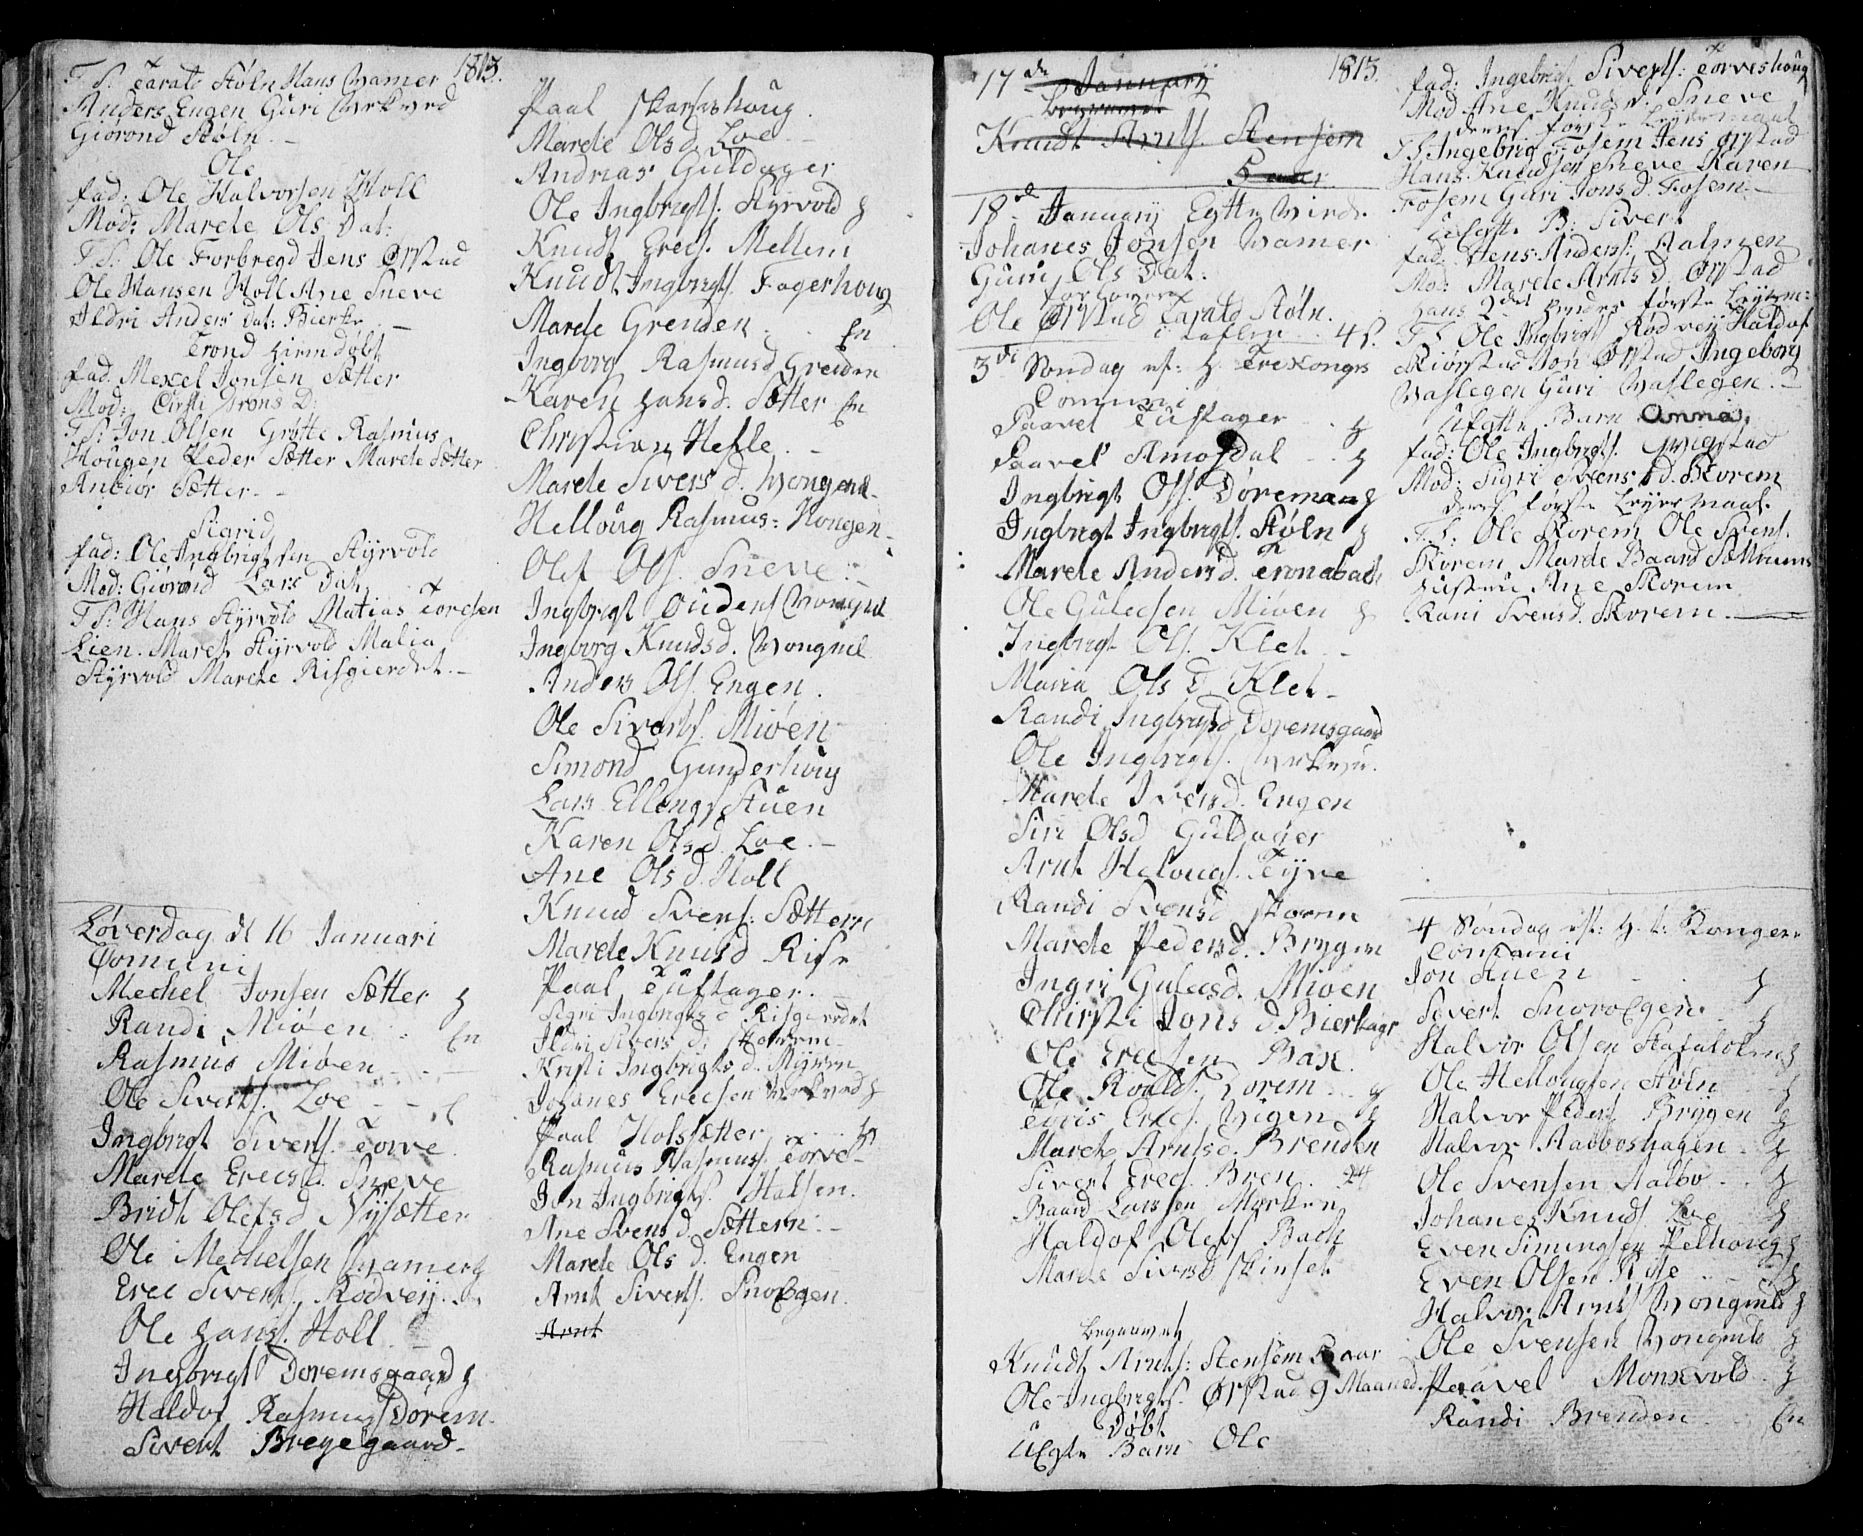 1813.
T. S. Tarald Støln Hans Vamer
Anders Engen Guri
Giorond Støln.
Ole
fad: Ole Halvorsen Holl
Mod: Marete Ols Dat:
T. S: Ole Forbregd Jens Ørstad
Ole Hansen Holl Ane Sneve
Ildri Anders Dat: Bierke
Trond hiemdøbt
fad. Mekel Jonsen Sætter
Mod: Cirsti D:
T. S: Jon Olsen Grøtte Rasmus
Hougen Peder Sætter Marete Sætter
Anbiør Sætter.
Sigrid
fad: Ole Ingbrigtsen Styrvold
Mod: Giorond Lars Dat,
T. S: Hans Styrvold Matias Toresen
Lien. Maret Styrvold Malia
Styrvold Marete Risgierdet.
Løverdag d 16 Januari
Comuni
Mechel Jonsen Sætter
Randi Miøen
Rasmus Miøen
Ole Siverts. Loe
Ingbrigt Siverts. Torve
Marete Erecsd. Sneve
Bridt Olefsd Nysætter
Ole Mechelsen Vamer
Erec Siverts. Rødveÿ
Ole hans. Holl
Ingbrigt Doremsgaard
Haldof Rasmus Dorem.
Sivert Bregegaard
Paal Skarsshoug.
Marete Olsd. Loe
Andrias Guldager
Ole Ingbrigts. Styrvold
Knudt Erecs. Mellem
Knudt Ingbrigts. Fagerhoug
Marete Grenden En
Ingborg Rasmusd. Grenden
Karen hansd. Sætter En
Christian Helle
Marete Sivers d. Vongend
Helloug Rasmus: Hougen
Olef Ols. Sneve
Ingbrigt Oudens Vongnel
Ingborg Knudsd. Vongnil
Anders Ols. Engen.
Ole Siverts. Miøen
Simond Gunderhoug
Lars Ellengs Stuen
Karen Olsd. Loe
Ane Olsd. Holl
Knud Svens. Sættern
Marete Knudsd Rise
Paal Tuftager
Sigri Ingbrigtsd Risgierdet
Ildri Sivers d. Skorem
Kristi Ingbrigts d. Miøen
Johanes Erecsen
Paal Holssætter
Rasmus Rasmus. Torve
Jon Ingbrigts. Halsen.
Ane Svens d. Sættern
Marete Ols d. Engen
Arnt Siverts. Snoegen
Arnt
17de Januarÿ 1813.
Begravet
Knudt Arnts. Stensem
5 aar
18de Januarÿ Egtevirde
Johanes Jonsen Vamer
Guru Ols Dat.
forlovere
Ole Ørstad Tarald Støln.
i taflen 4 s.
3di Søndag ef: h. Trekonger
Comuni
Paavel Tuftager
Paavel Amosdal
Ingbrigt Ols. Døreman
Ingbrigt Ingbrigts. Støln
Marete Andersd. Tronabach
Ole Gulecsen Miøen
Ingbrigt Ols. Klet
Maria Ols d. Klet
Randi Ingbrigtsd Doremsgaard
Ole Ingbrigts.
Marete Iversd. Engen
Siri Olsd Guldager
Arnt Helougs. Tyve
Randi Svensd Skorem
Marete Pedersd. Bryggen
Ingri Gulecsd. Miøen
Chirsti Jons d. Bierkager
Ole Erecsen Bak
Ole Roalds. Dorem
Toris Erecs. Vigen
Marete Arntsd. Brenden
Sivert Erecs. Bren
Baard Larssen Morken
Haldof Olefs Bach
Marete Siversd Skinset
Begravet
Knudt Arnts: Stensem 5 aar
Ole Ingbrigts. Ørstad 9 Maaned.
Døbt
Uegte Barn Ole
fad: Ingebrigt Siverts: Torveshoug
Mod Ane Knudsd. Sneve
deres første Leyermaal
T. S. Ingebrig Fosem Jens Ørstad
Hans Knudsen Sneve Karen
Fosem Guri Jonsd. Fosem
uegte B: Sivert
fad: Jens Anders. Aalmoen
Mod: Marete Arnts d. Ørstad
hans 2det hendes første Leyerm:
T. S. Ole Ingbrigts Rødveÿ Haldof
Kiørstad Jon Ørstad Ingeborg
Vaslegen Guri Vaslegen.
Uegte Barn Anna
fad: Ole Ingbrigts.
Mod: Sigri Svens d. Skorem
deres første Leyermaal.
T. S: Ole Skorem Ole Svens.
Skorem Marete Baard Sættrems
hustrue Ane Skorem
Rani Svensd. Skorem
4 Søndag ef: h. t: Konger
Comuni
Jon Stuen
Sivert Snoroegen
Halvor Olsen Stafaløkens
Ole Hellougsen Støln
Halvor Peders Bryggen
Halvor Raaboshagen
Ole Svensen Aalbo
Johanes Knuds Loe
Even Simingsen Pelhoug
Even Olsen Rise
Halvor Arnts Vongnild
Ole Svensen Vongnild
Paavel Monkvold
Randi Brenden En